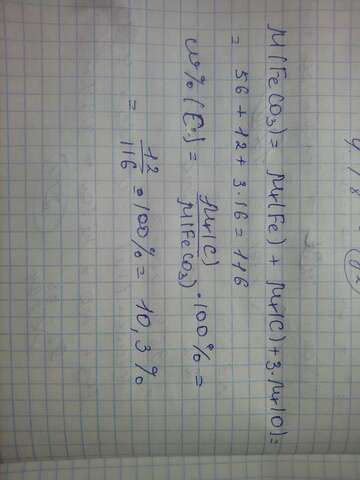 M(FeCO₃) = Mr(Fe) + Mr(C) + 3·Mr(O) =
= 56 + 12 + 3·16 = 116
w% (C) = Mr(C) / M(FeCO₃) · 100% =
= 12 / 116 · 100% = 10,3%